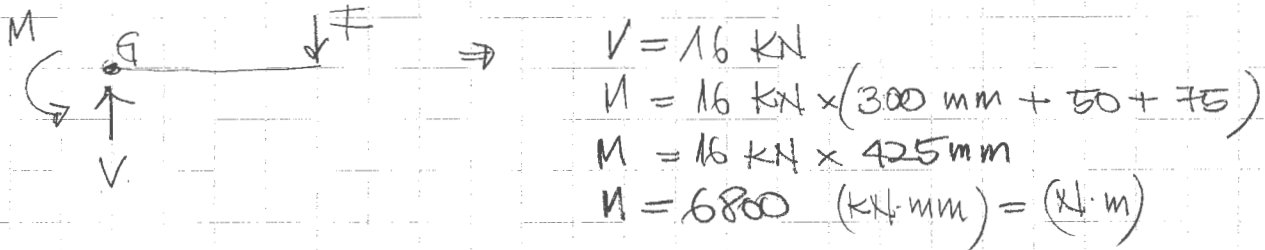 M G F
V
⇒ V = 16 KN
M = 16 KN × (300 mm + 50 + 75)
M = 16 KN × 425 mm
M = 6800 (KN·mm) = (N·m)